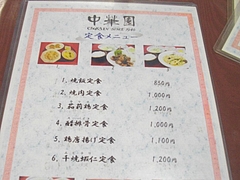 中華園
定食メニュー
1. 焼飯定食 850
2. 焼肉定食 1,000円
3. 茄莉鶏定食 1,200円
4. 酢排骨定食 1,000円
5. 鶏唐揚げ定食 1,100円
6. 干焼蝦仁定食 1,200円